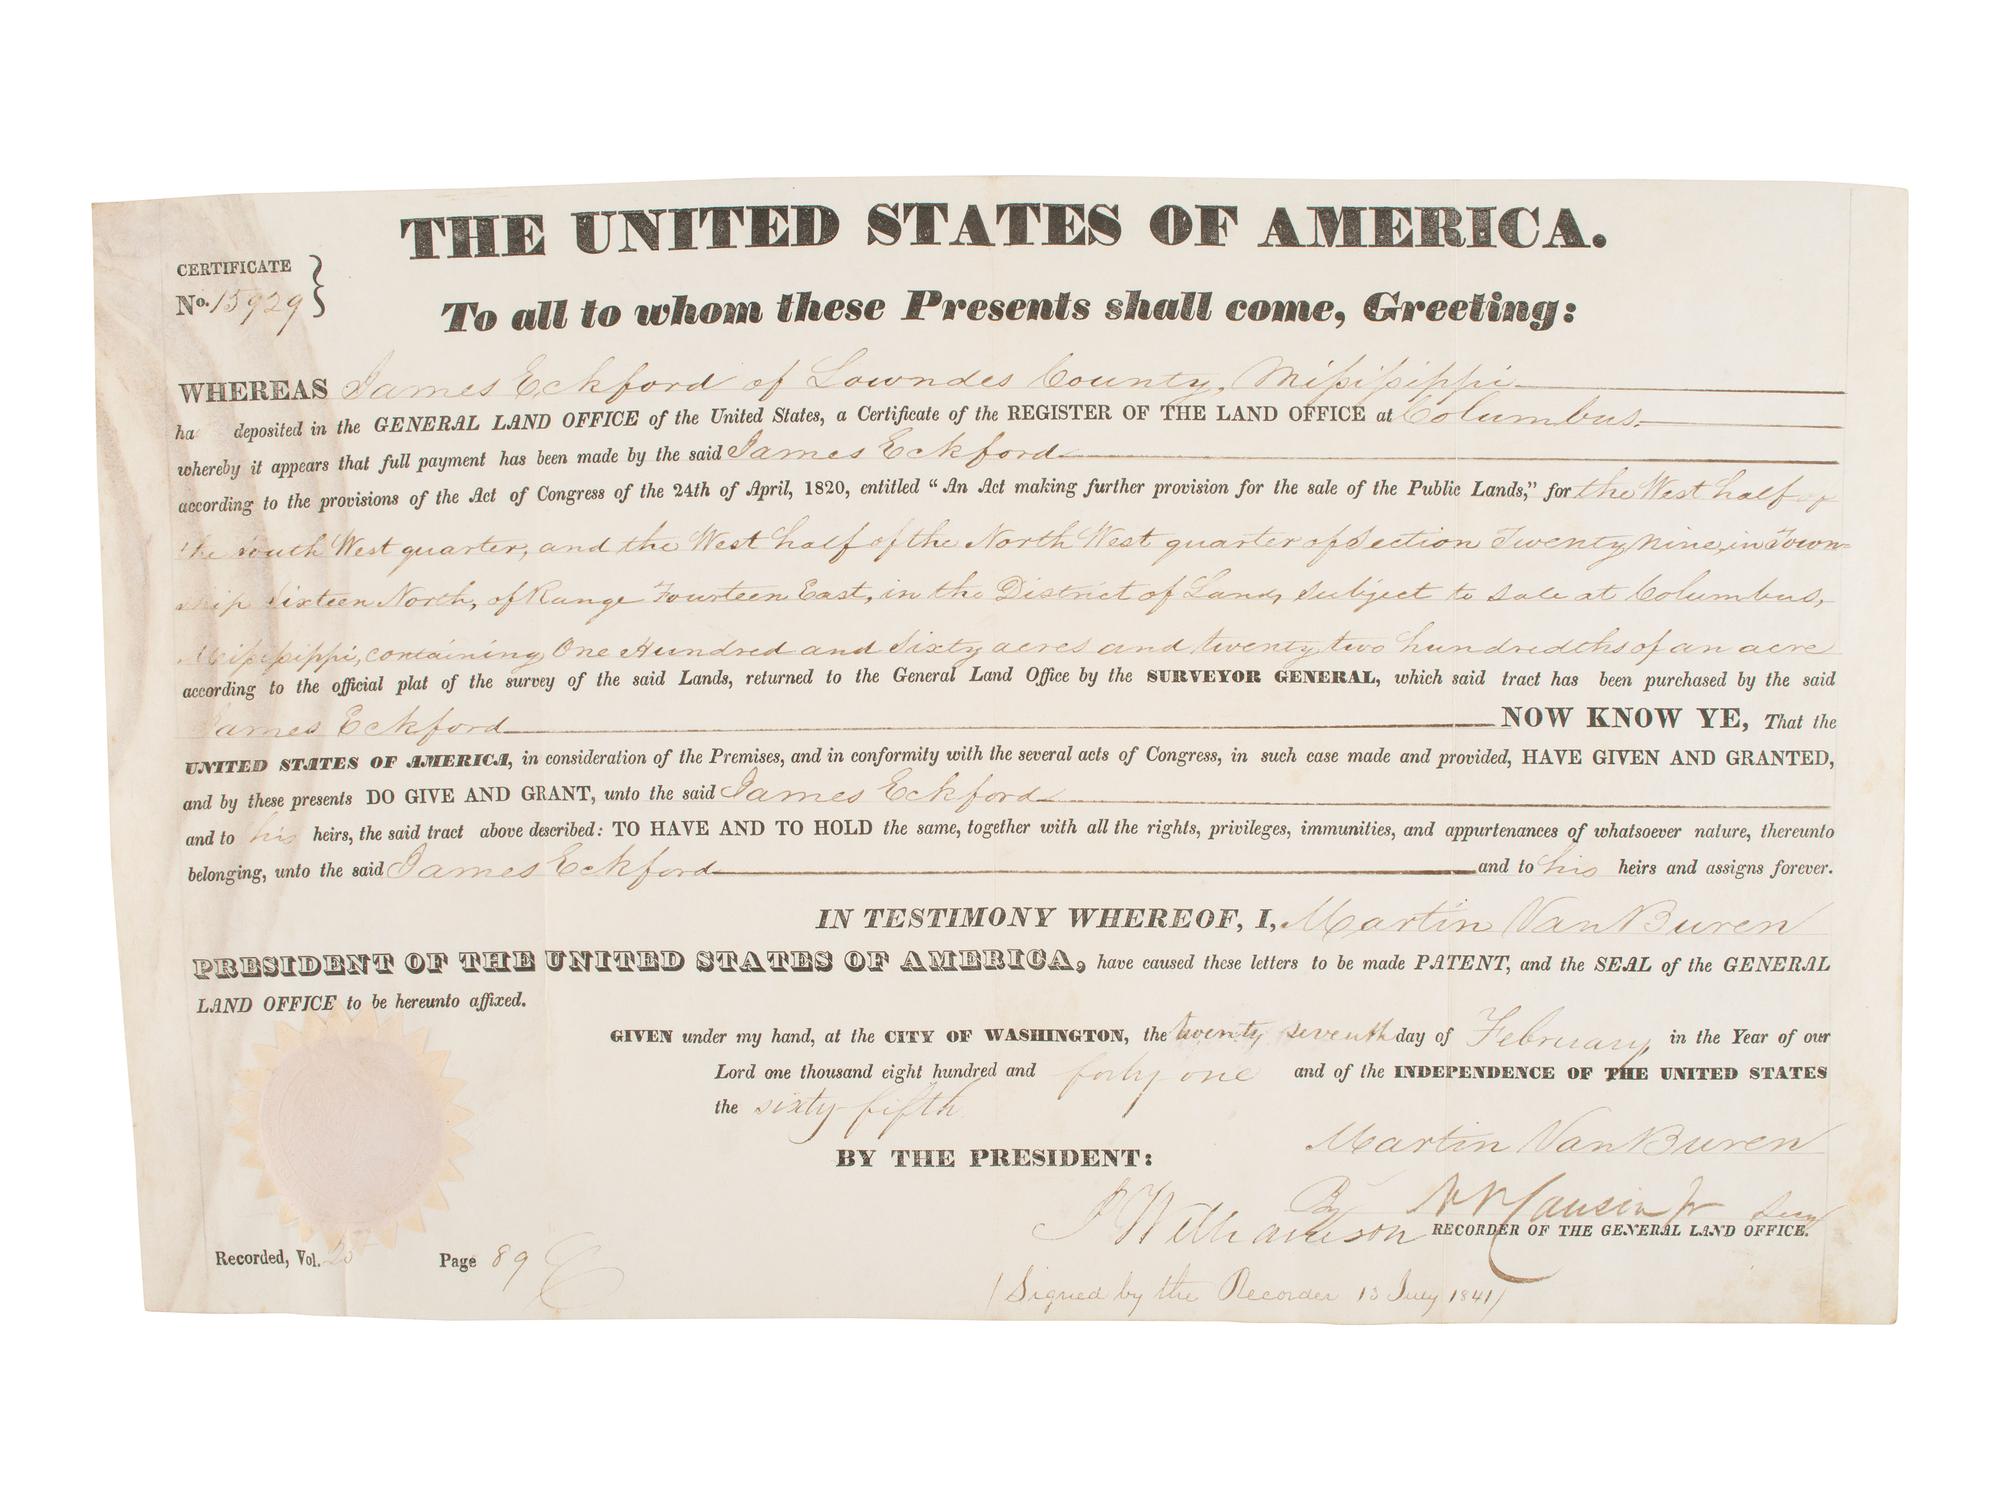 THE UNITED STATES OF AMERICA.
CERTIFICATE
No. 15929
To all to whom these Presents shall come, Greeting:
WHEREAS James Eckford of Lowndes County, Missisippi
ha deposited in the GENERAL LAND OFFICE of the United States, a Certificate of the REGISTER OF THE LAND OFFICE at Columbus
whereby it appears that full payment has been made by the said James Eckford
according to the provisions of the Act of Congress of the 24th of April, 1820, entitled “An Act making further provision for the sale of the Public Lands,” for the West half of
the South West quarter, and the West half of the North West quarter of Section Twenty nine, in Town=
ship Sixteen North, of Range Fourteen East, in the District of Lands subject to sale at Columbus,
Missisippi, containing One Hundred and Sixty acres and twenty two hundredths of an acre
according to the official plat of the survey of the said Lands, returned to the General Land Office by the SURVEYOR GENERAL, which said tract has been purchased by the said
James Eckford NOW KNOW YE, That the
UNITED STATES OF AMERICA, in consideration of the Premises, and in conformity with the several acts of Congress, in such case made and provided, HAVE GIVEN AND GRANTED,
and by these presents DO GIVE AND GRANT, unto the said James Eckford
and to his heirs, the said tract above described: TO HAVE AND TO HOLD the same, together with all the rights, privileges, immunities, and appurtenances of whatsoever nature, thereunto
belonging, unto the said James Eckford and to his heirs and assigns forever.
IN TESTIMONY WHEREOF, I, Martin Van Buren
PRESIDENT OF THE UNITED STATES OF AMERICA, have caused these letters to be made PATENT, and the SEAL of the GENERAL
LAND OFFICE to be hereunto affixed.
GIVEN under my hand, at the CITY OF WASHINGTON, the twenty seventh day of February in the Year of our
Lord one thousand eight hundred and forty one and of the INDEPENDENCE OF THE UNITED STATES
the sixty-fifth
BY THE PRESIDENT: Martin Van Buren
By
J Williamson RECORDER OF THE GENERAL LAND OFFICE.
Recorded, Vol. 25 Page 89
(Signed by the Recorder 13 July 1841)